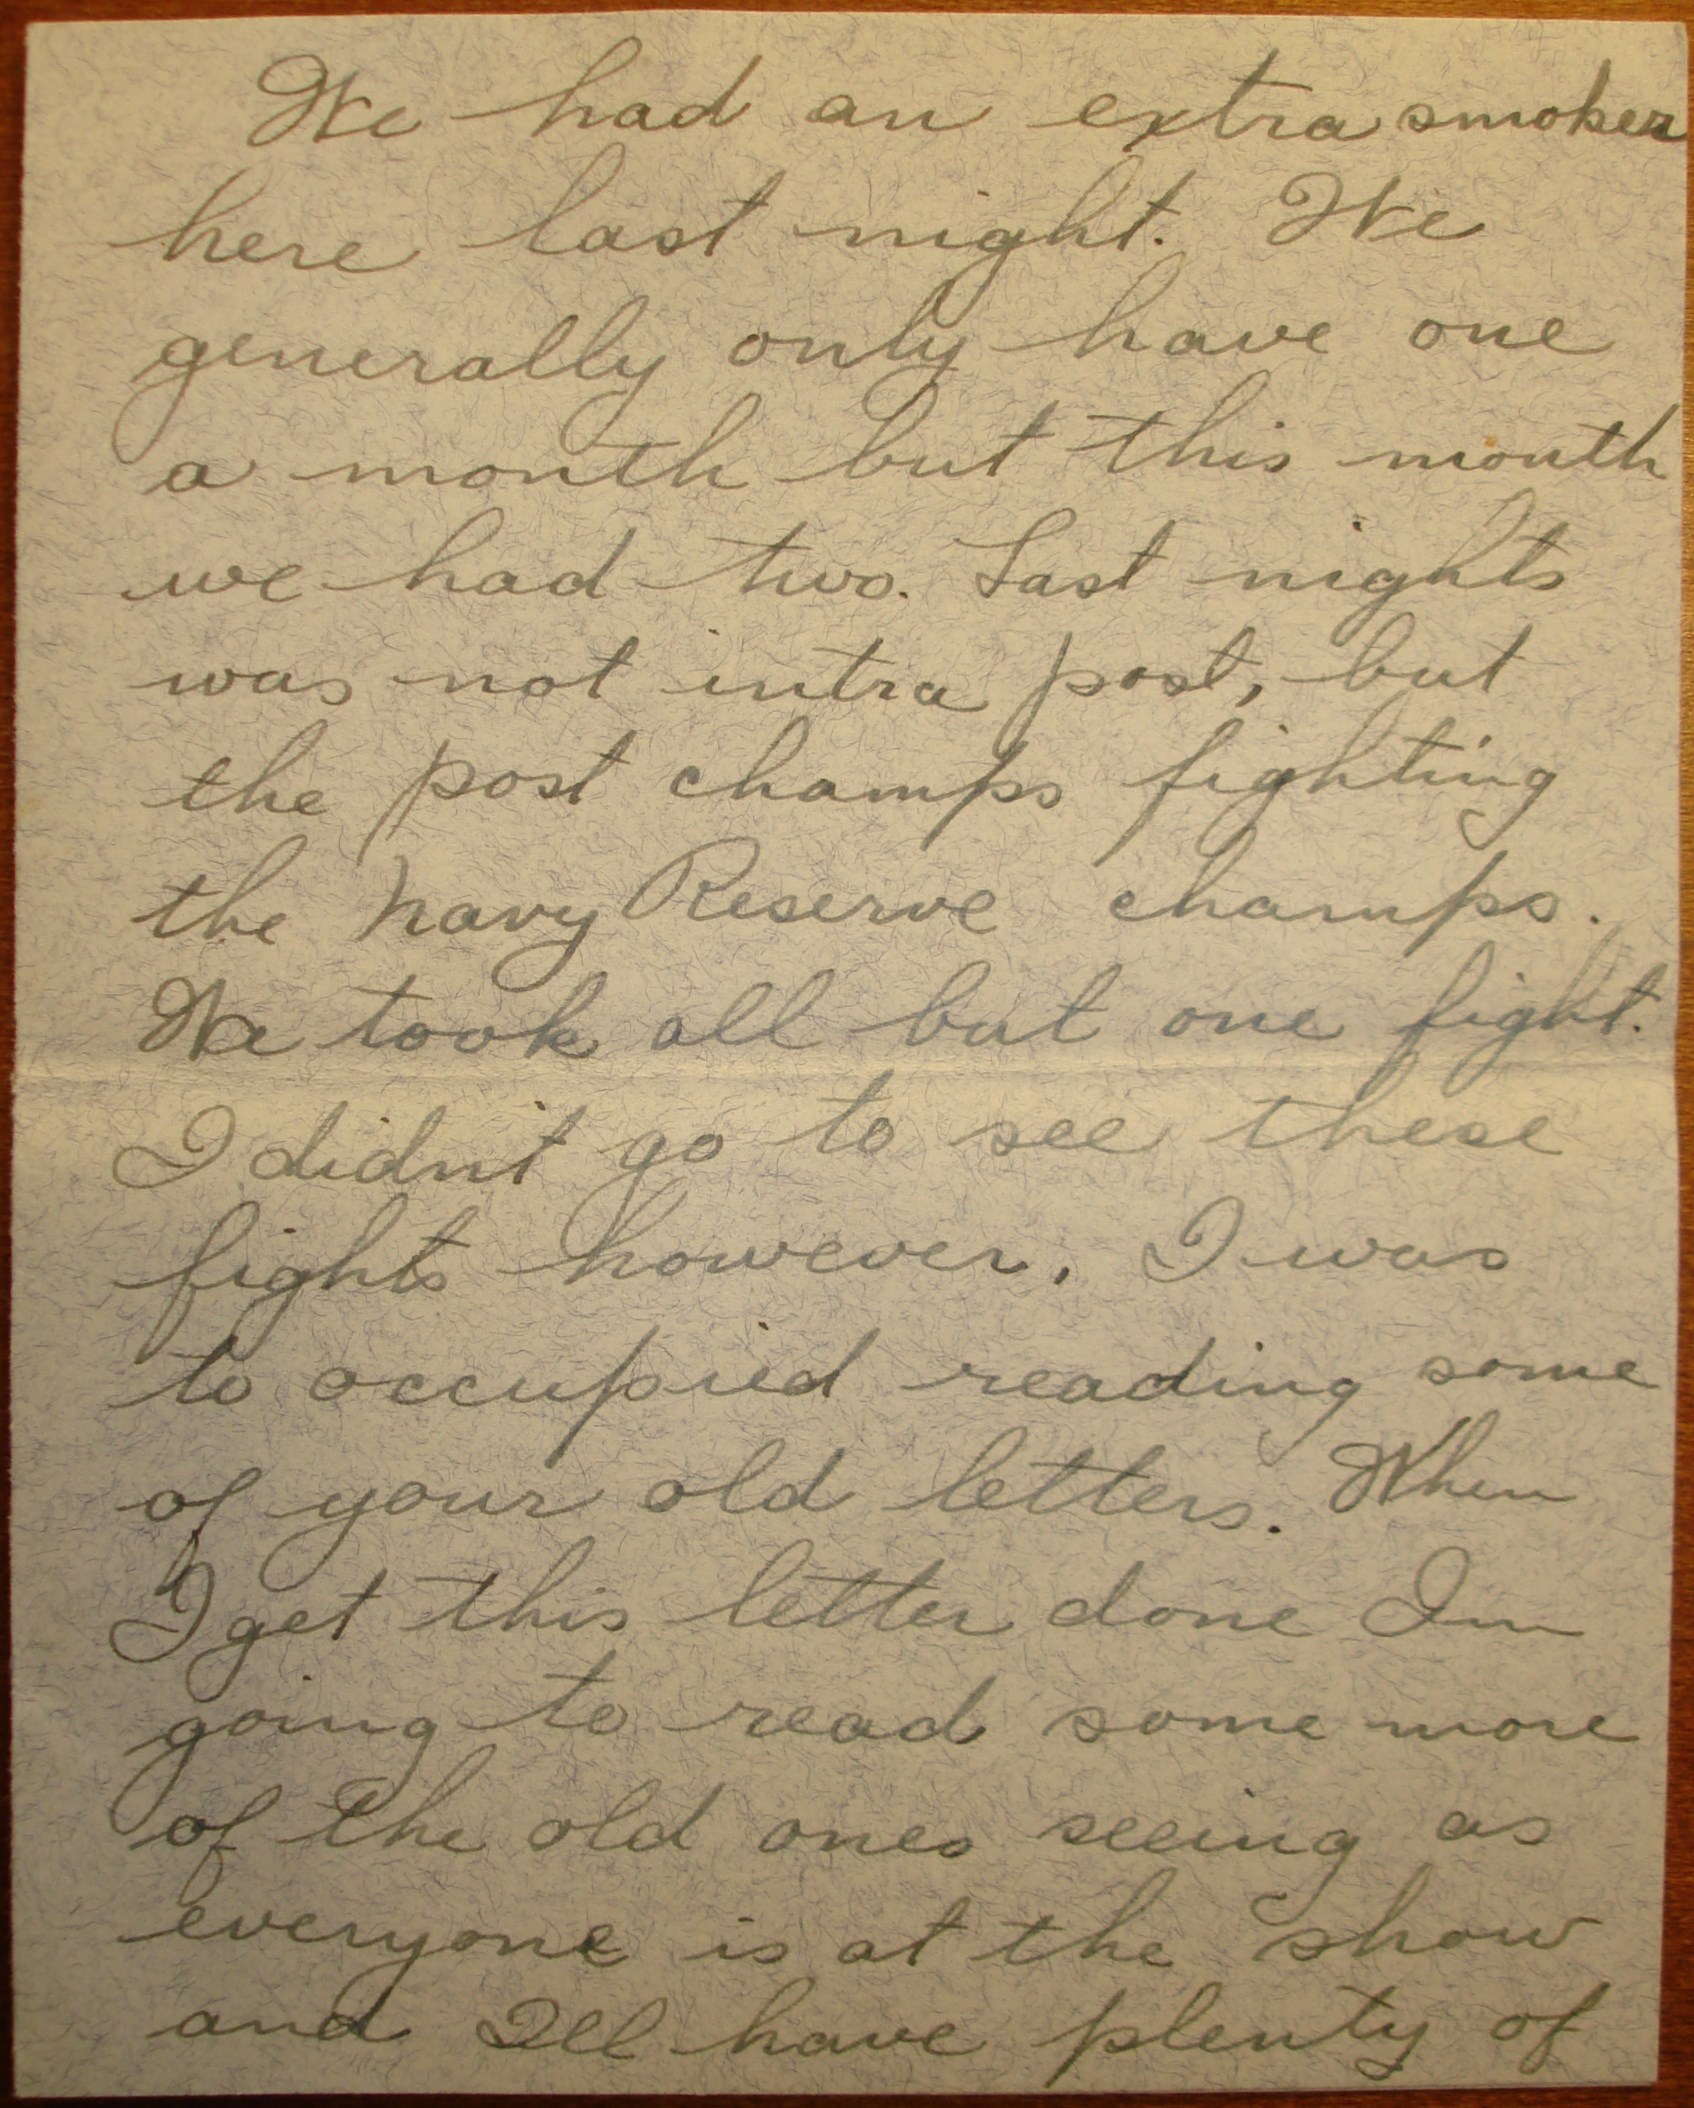 We had an extra smoker
here last night. We
generally only have one
a month but this month
we had two. Last nights
was not intra post, but
the post champs fighting
the Navy Reserve champs.
We took all but one fight.
I didn't go to see these
fights however. I was
to occupied reading some
of your old letters. When
I get this letter done Im
going to read some more
of the old ones seeing as
everyone is at the show
and Ill have plenty of